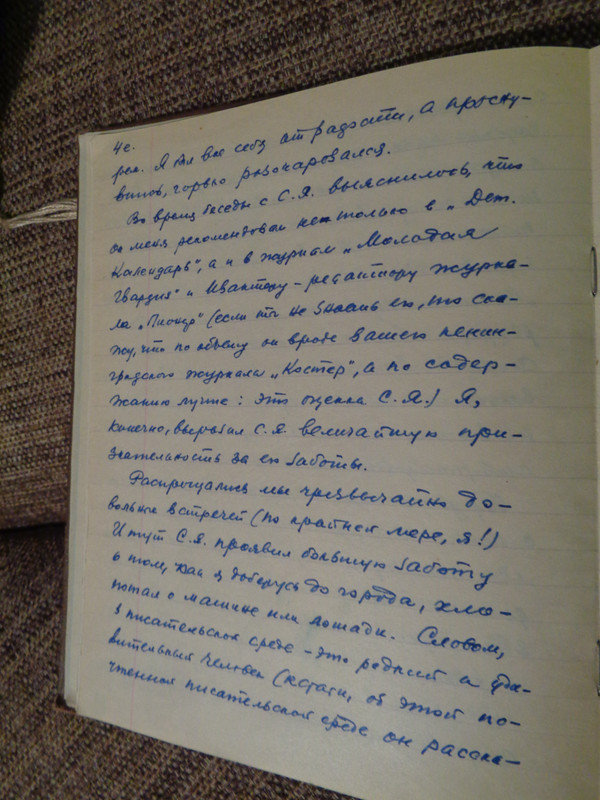 4е.
рек. Я был вне себя от радости, а просну-
вшись, горько разочаровался.
Во время беседы с С.Я. выяснилось, что
он меня рекомендовал не только в „Дет.
Календарь", а и в журнал „Молодая
Гвардия" и Ивантеру – редактору журна-
ла „Пионер" (если ты не знаешь его, то ска-
жу, что по объему он вроде вашего ленин-
градского журнала „Костер", а по содер-
жанию лучше: это оценка С.Я.) Я,
конечно, выразил С.Я. величайшую при-
знательность за его заботы.
Распрощались мы чрезвычайно до-
вольные встречей (по крайней мере, я!)
И тут С.Я. проявил большую заботу
о том, как я доберусь до города, хло-
потал о машине или лошади. Словом,
в писательской среде – это редкий и уди-
вительный человек (кстати, об этой по-
чтенной писательской среде он расска-